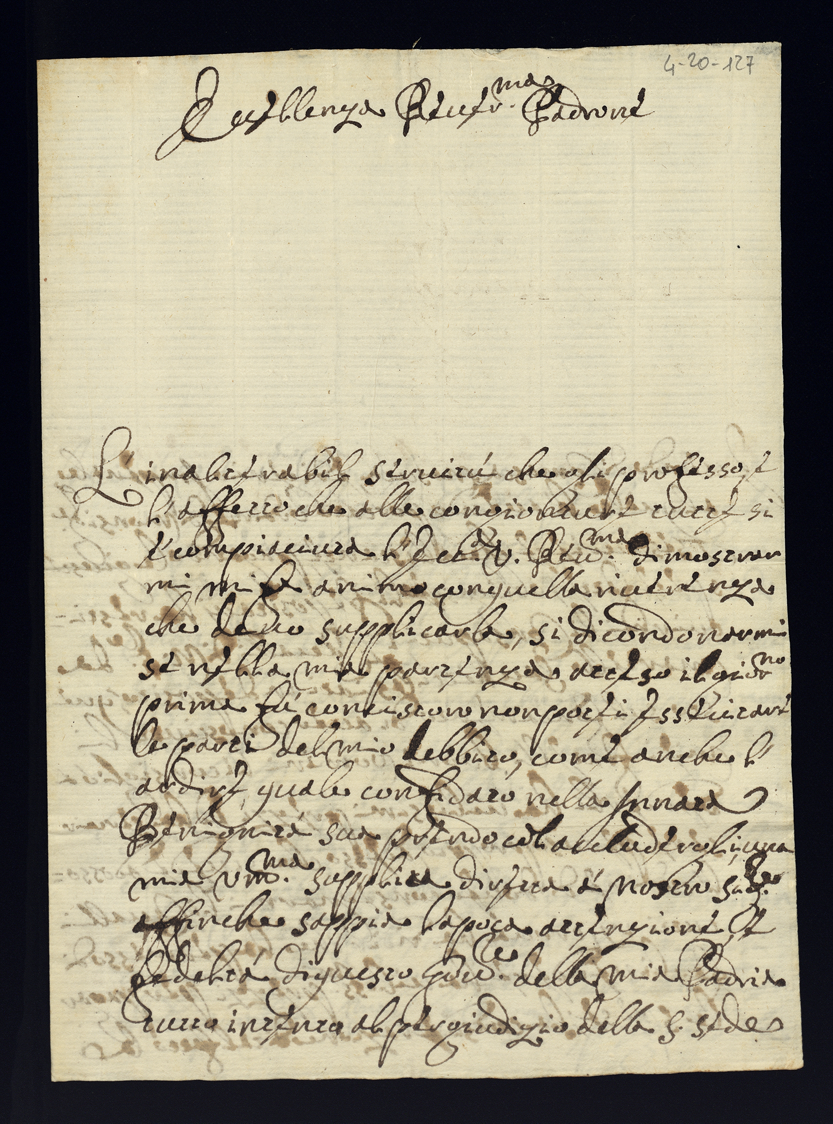 4-20-127
Eccellenza Reue.ma Padrone
L'inalterabil seruitù che gli professo, e
l'affetto che alle congionture tutte si
è compiaciuta l'Ecc.a V. Reu.ma dimostrar
mi mi fa animo con quella riuerenza
che deuo supplicarla, si di condonarmi
se nella mia partenza atteso il giorno
prima fù concistoro non potei essecutare
le parti del mio debbito, come anche l'
ardire, quale confidato nella Innata
Benignità sua prendo col accludergli una
mia um.ma supplica diretta à nostro Sig.re
affinche sappia la poca attenzione, et
fedeltà di questo Gou.re della mia Padria
tutto intento al pregiudizio della S. Sede